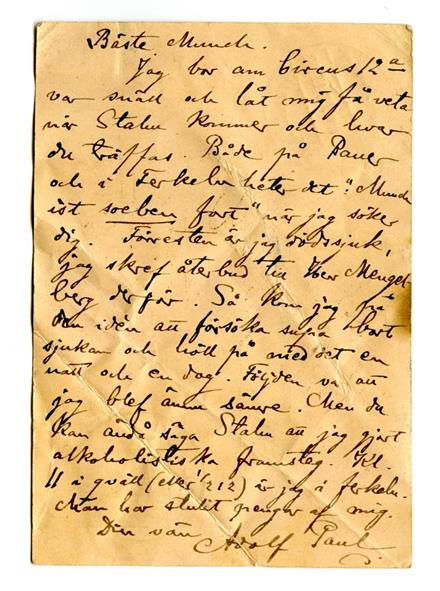 Bäste Munch.
Jag bor am Circus 12a
var snäll och låt mig få veta
när Stalin kommer och hvar
du träffas. Både på Bauer
och i Ferkeln heter det: "Munch
ist soeben fort" när jag söker
dig. Förresten är jag dödssjuk,
jag skref återbud till Herr Mengel-
berg derför. Så kom jag på
den idén att försöka supa bort
sjukan och höll på med det en
natt och en dag. Följden va att
jag blef ännu sämre. Men du
kan ändå säga Stalin att jag gjort
alkoholistiska framsteg. Kl.
11 i qväll (eller 1/2 12) är jag i Ferkeln.
Man har stulit pengar af mig.
Din vän
Adolf Paul.